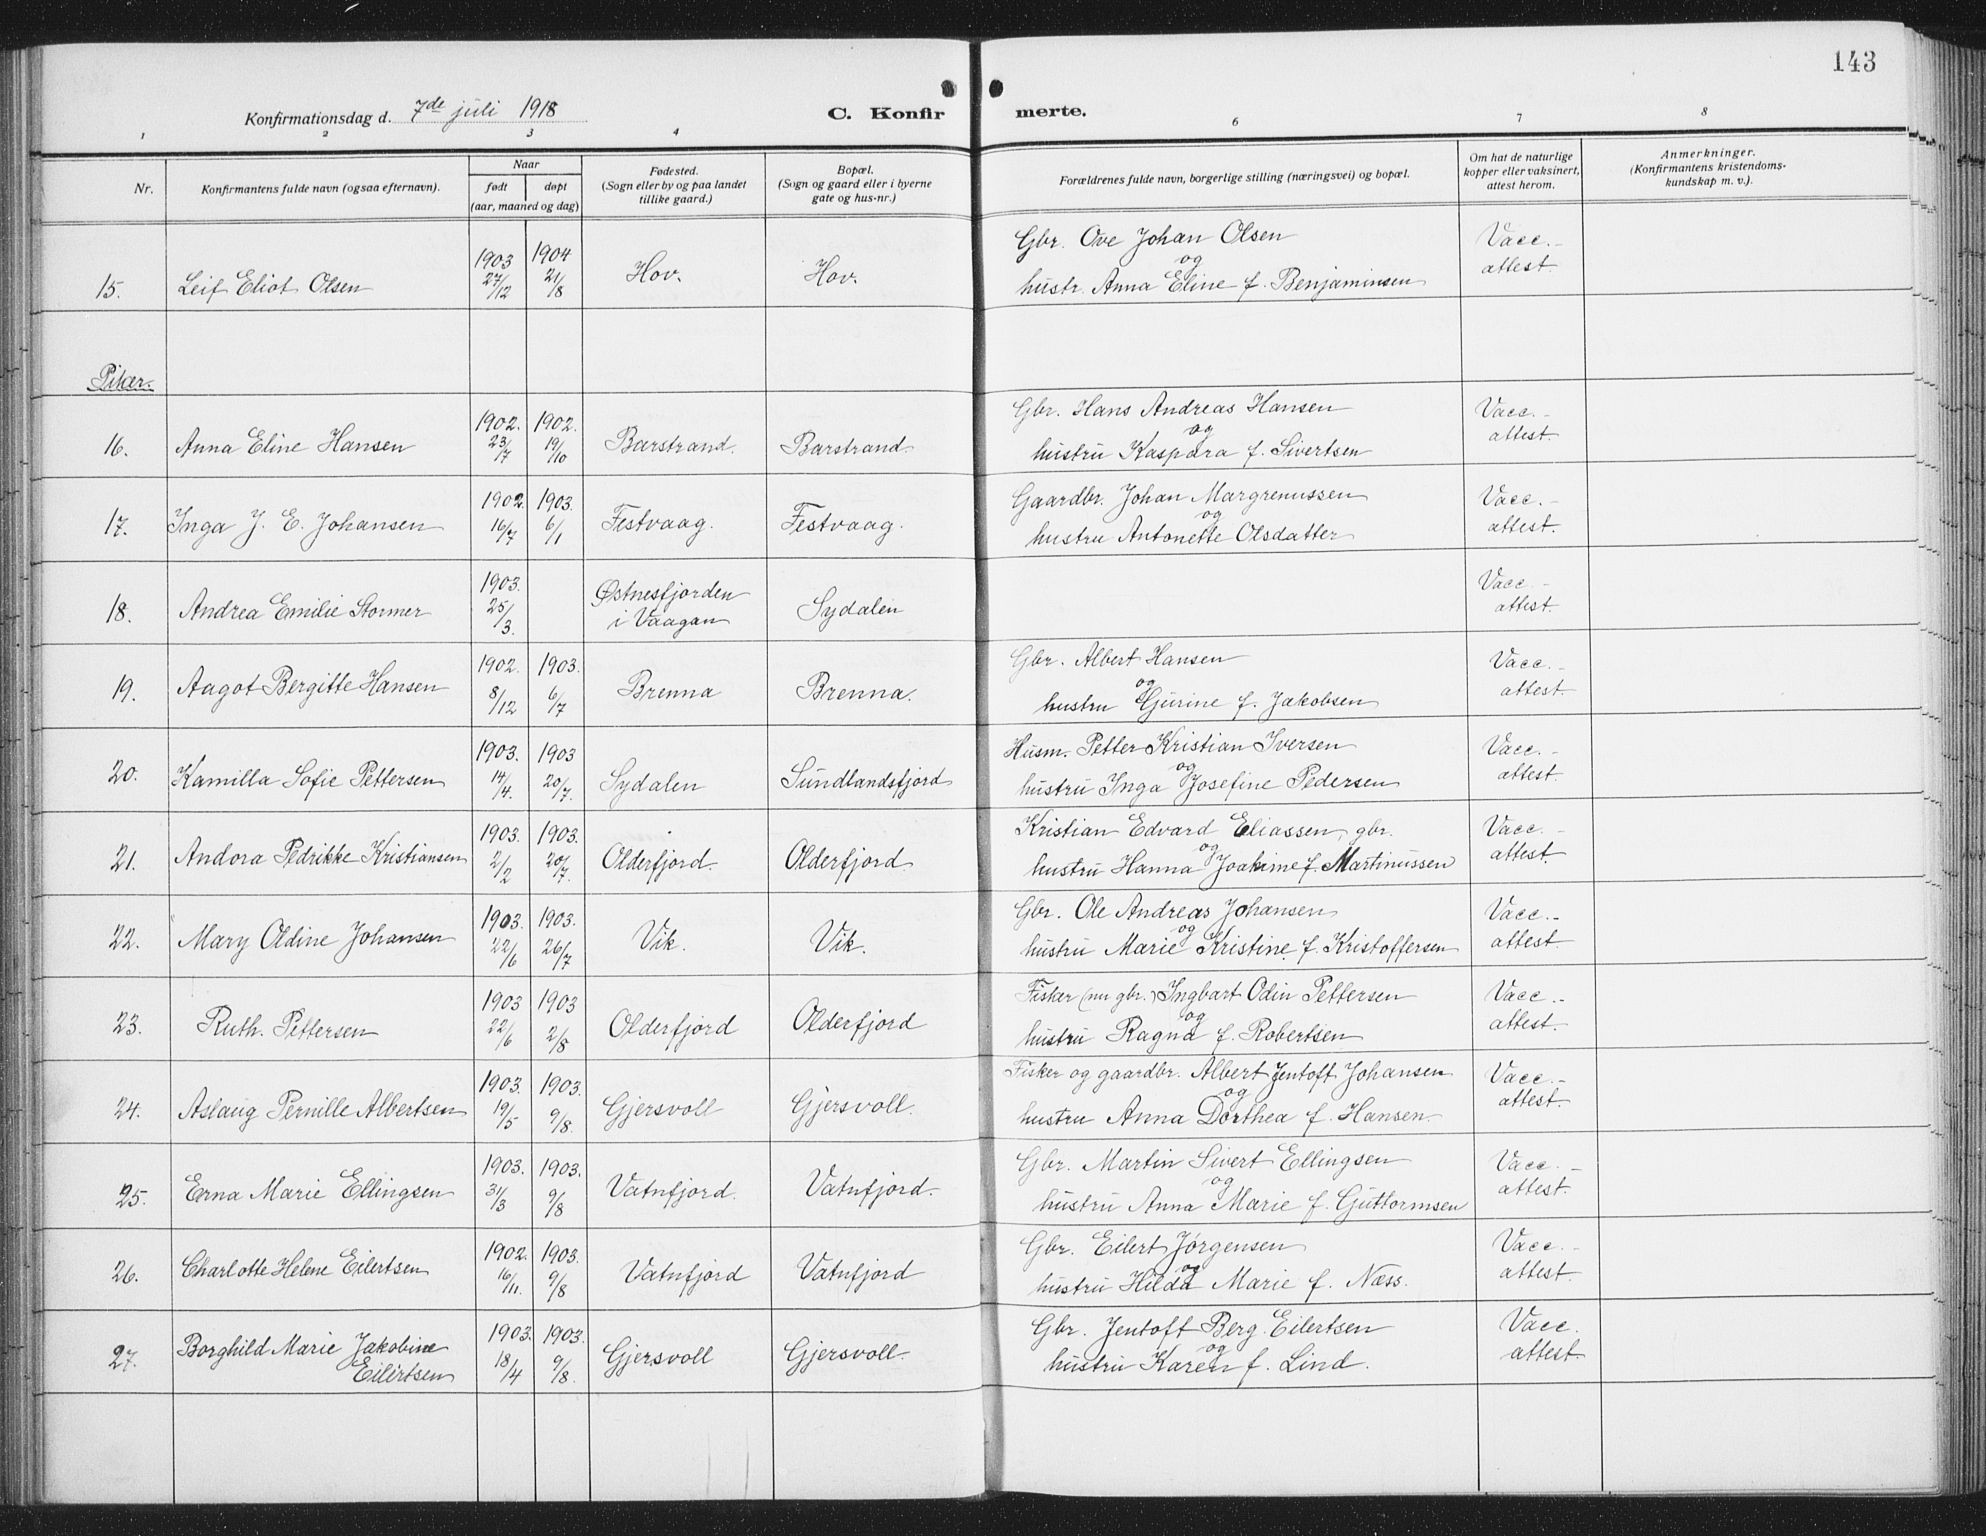 143
Konfirmationsdag d. 7de juli 1918 C. Konfirmerte.
1 2 3 4 6 7 8
Nr. Konfirmantens fulde navn (ogsaa efternavn). Naar født døpt (aar, maaned og dag) Fødested. (Sogn eller by og paa landet tillike gaard.) Bopæl. (Sogn og gaard eller i byerne gate og hus-nr.) Forældrenes fulde navn, borgerlige stilling (næringsvei) og bopæl. Om hat de naturlige kopper eller vaksinert, attest herom. Anmerkninger. (Konfirmantens kristendoms-kundskap m. v.).
15. Leif Eliot Olsen 1903 27/12 1904 21/8 Hov. Hov. Gbr. Ove Johan Olsen og hustr. Anna Eline f. Benjaminsen Vacc.- attest.
Piker.
16. Anna Eline Hansen 1902. 23/7 1902. 19/10 Barstrand. Barstrand. Gbr. Hans Andreas Hansen og hustru Kaspara f. Sivertsen Vacc.- attest.
17. Inga J. E. Johansen 1902. 16/7 1903. 6/1 Festvaag. Festvaag. Gaardbr. Johan Margrenussen og hustru Antonette Olsdatter Vacc.- attest.
18. Andrea Emilie Stormer 1903. 25/3. Østnesfjorden i Vaagan Sydalen Vacc.- attest.
19. Aagot Bergitte Hansen 1902. 8/12 1903. 6/7 Brenna Brenna. Gbr. Albert Hansen og hustru Gjurine f. Jakobsen Vacc.- attest.
20. Kamilla Sofie Pettersen 1903. 14/4. 1903 20/7. Sydalen Sundlandsfjord Husm. Petter Kristian Iversen og hustru Inga Josefine Pedersen Vacc.- attest.
21. Andora Pedrikke Kristiansen 1903. 2/2 1903. 20/7. Olderfjord. Olderfjord Kristian Edvard Eliassen, gbr. og hustru Hanna Joakime f. Martinussen Vacc.- attest.
22. Mary Oldine Johansen 1903. 22/6 1903. 26/7 Vik. Vik. Gbr. Ole Andreas Johansen og hustru Marie Kristine f. Kristoffersen Vacc.- attest.
23. Ruth. Pettersen 1903 22/6 1903 2/8 Olderfjord Olderfjord Fisker (nu gbr.) Ingbart Odin Pettersen og hustru Ragna f. Robertsen Vacc.- attest.
24. Aslaug Pernille Albertsen 1903. 19/5 1903. 9/8. Gjersvoll Gjersvoll. Fisker og gaardbr. Albert Jentoft Johansen og hustru Anna Dorthea f. Hansen. Vacc.- attest.
25. Erna Marie Ellingsen 1903. 31/3 1903. 9/8 Vatnfjord. Vatnfjord. Gbr. Martin Sivert Ellingsen og hustru Anna Marie f. Guttormsen Vacc.- attest.
26. Charlotte Helene Eilertsen 1902. 16/11. 1903. 9/8 Vatnfjord Vatnfjord Gbr. Eilert Jørgensen og hustru Hilda Marie f. Næss. Vacc.- attest.
27. Borghild Marie Jakobine Eilertsen 1903. 18/4 1903. 9/8. Gjersvoll Gjersvoll. Gbr. Jentoft Berg Eilertsen og hustru Karen f. Lind. Vacc. attest.